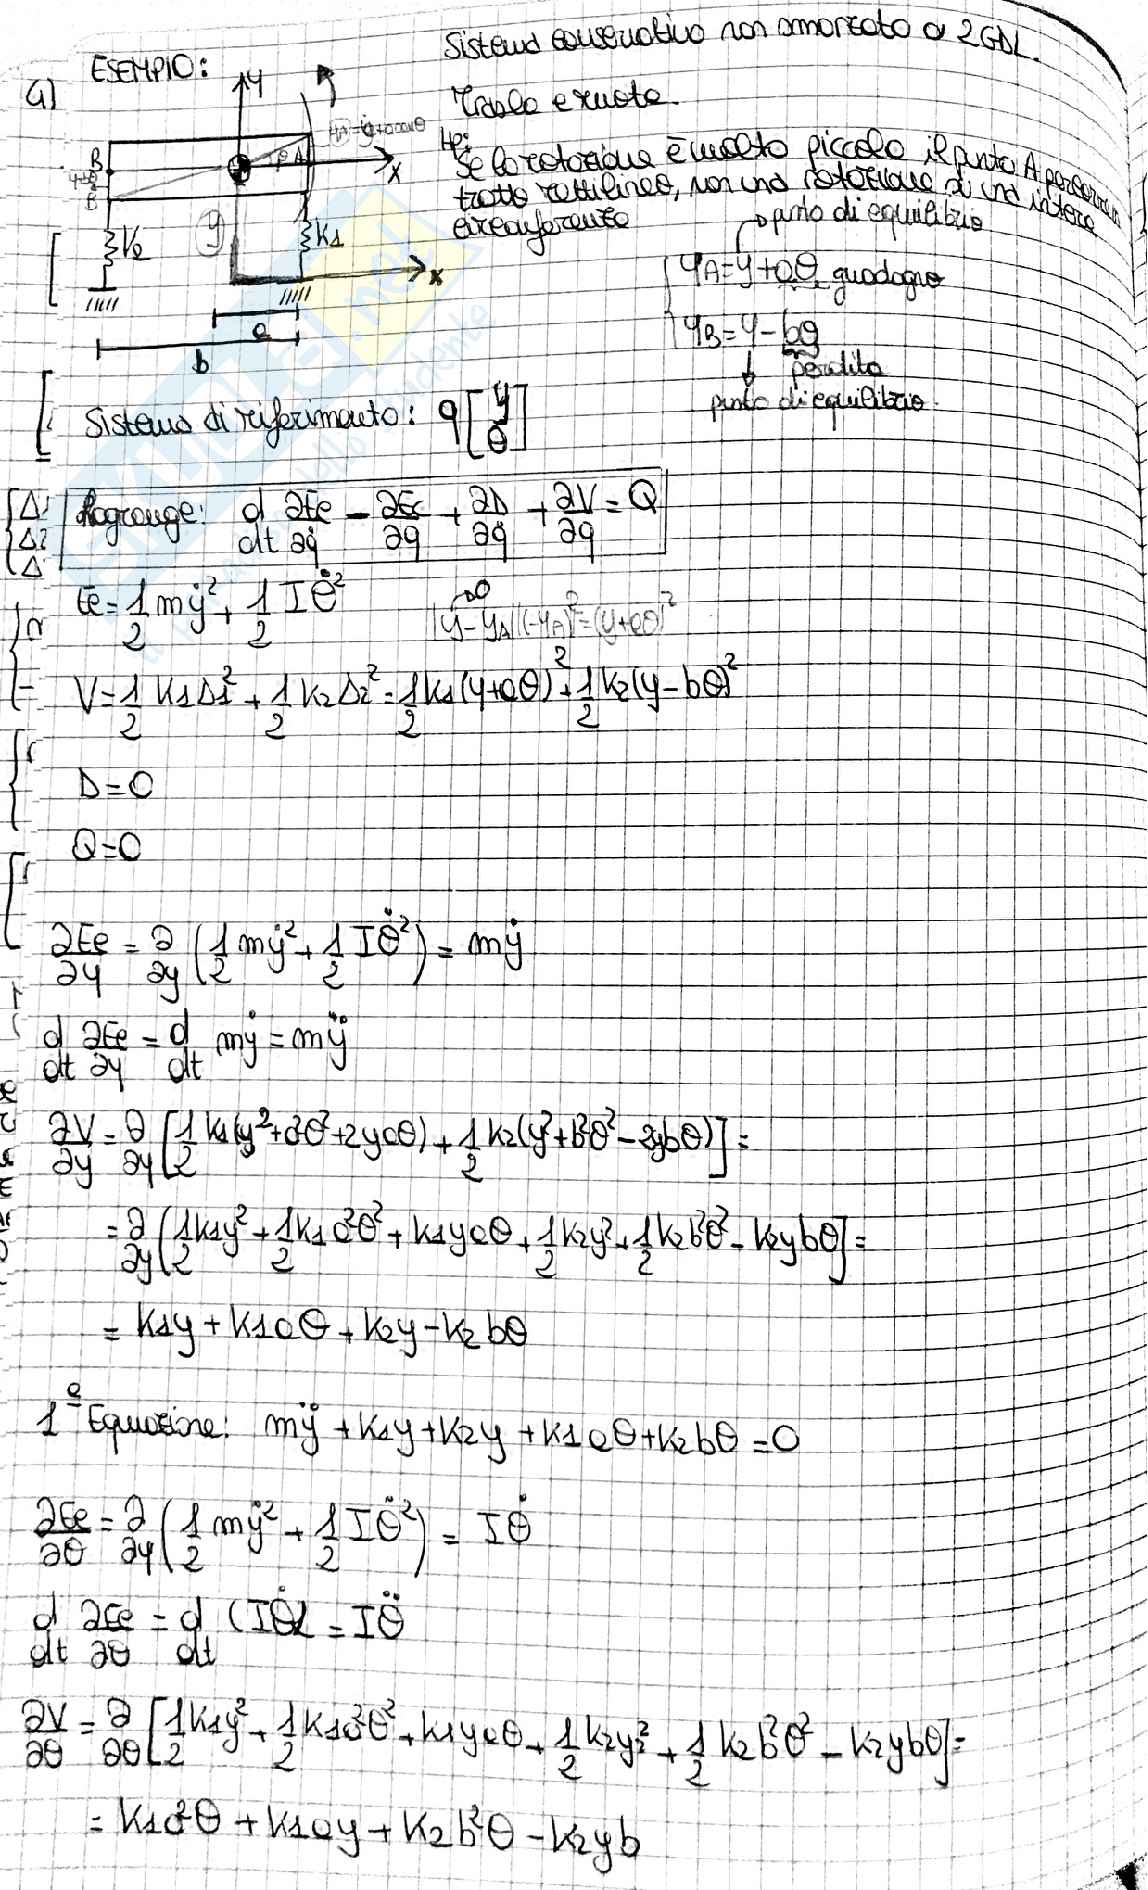 Sistema conservativo non smorzato a 2GDL.
a) ESEMPIO:
Trasla e ruota.
Hp:
Se la rotazione è molto piccola, il punto A percorre un
tratto rettilineo, non una rotazione di una intera
circonferenza
y
x
A
B
G
k2
k1
x
a
b
→ punto di equilibrio
yA=y+aθ guadagno
yB=y-bθ
perdita
punto di equilibrio.
Sistema di riferimento: q[y θ]
Lagrange: d/dt ∂Ec/∂q̇ - ∂Ec/∂q + ∂D/∂q̇ + ∂V/∂q = Q
Ec=1/2 mẏ² + 1/2 Iθ̇²
V=1/2 k1Δ1² + 1/2 k2Δ2² = 1/2 k1(y+aθ)² + 1/2 k2(y-bθ)²
D=0
Q=0
∂Ec/∂y = ∂/∂y (1/2 mẏ² + 1/2 Iθ̇²) = mẏ
d/dt ∂Ec/∂y = d/dt mẏ = mÿ
∂V/∂y = ∂/∂y [1/2 k1(y²+a²θ²+2yaθ) + 1/2 k2(y²+b²θ²-2ybθ)] =
= ∂/∂y [1/2 k1y² + 1/2 k1a²θ² + k1yaθ + 1/2 k2y² + 1/2 k2b²θ² - k2ybθ] =
= k1y + k1aθ + k2y - k2bθ
1ª Equazione: mÿ + k1y + k2y + k1aθ + k2bθ = 0
∂Ec/∂θ = ∂/∂y (1/2 mẏ² + 1/2 Iθ̇²) = Iθ̇
d/dt ∂Ec/∂θ = d/dt (Iθ̇) = Iθ̈
∂V/∂θ = ∂/∂θ [1/2 k1y² + 1/2 k1a²θ² + k1yaθ + 1/2 k2y² + 1/2 k2b²θ² - k2ybθ] =
= k1a²θ + k1ay + k2b²θ - k2yb